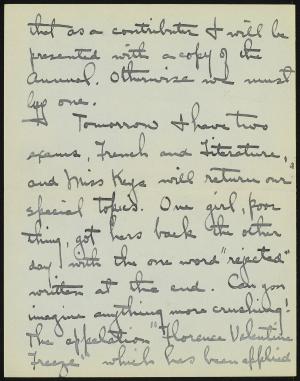 that as a contributer I will be
presented with a copy of the
Annual. Otherwise we must
buy one.
Tomorrow I have two
exams, French and Literature,
and Miss Keys will return our
special topics. One girl, poor
thing, got hers back the other
day with the one word "rejected"
written at the end. Can you
imagine anything more crushing!
The appelation "Florence Valentine
Freeze" which has been applied